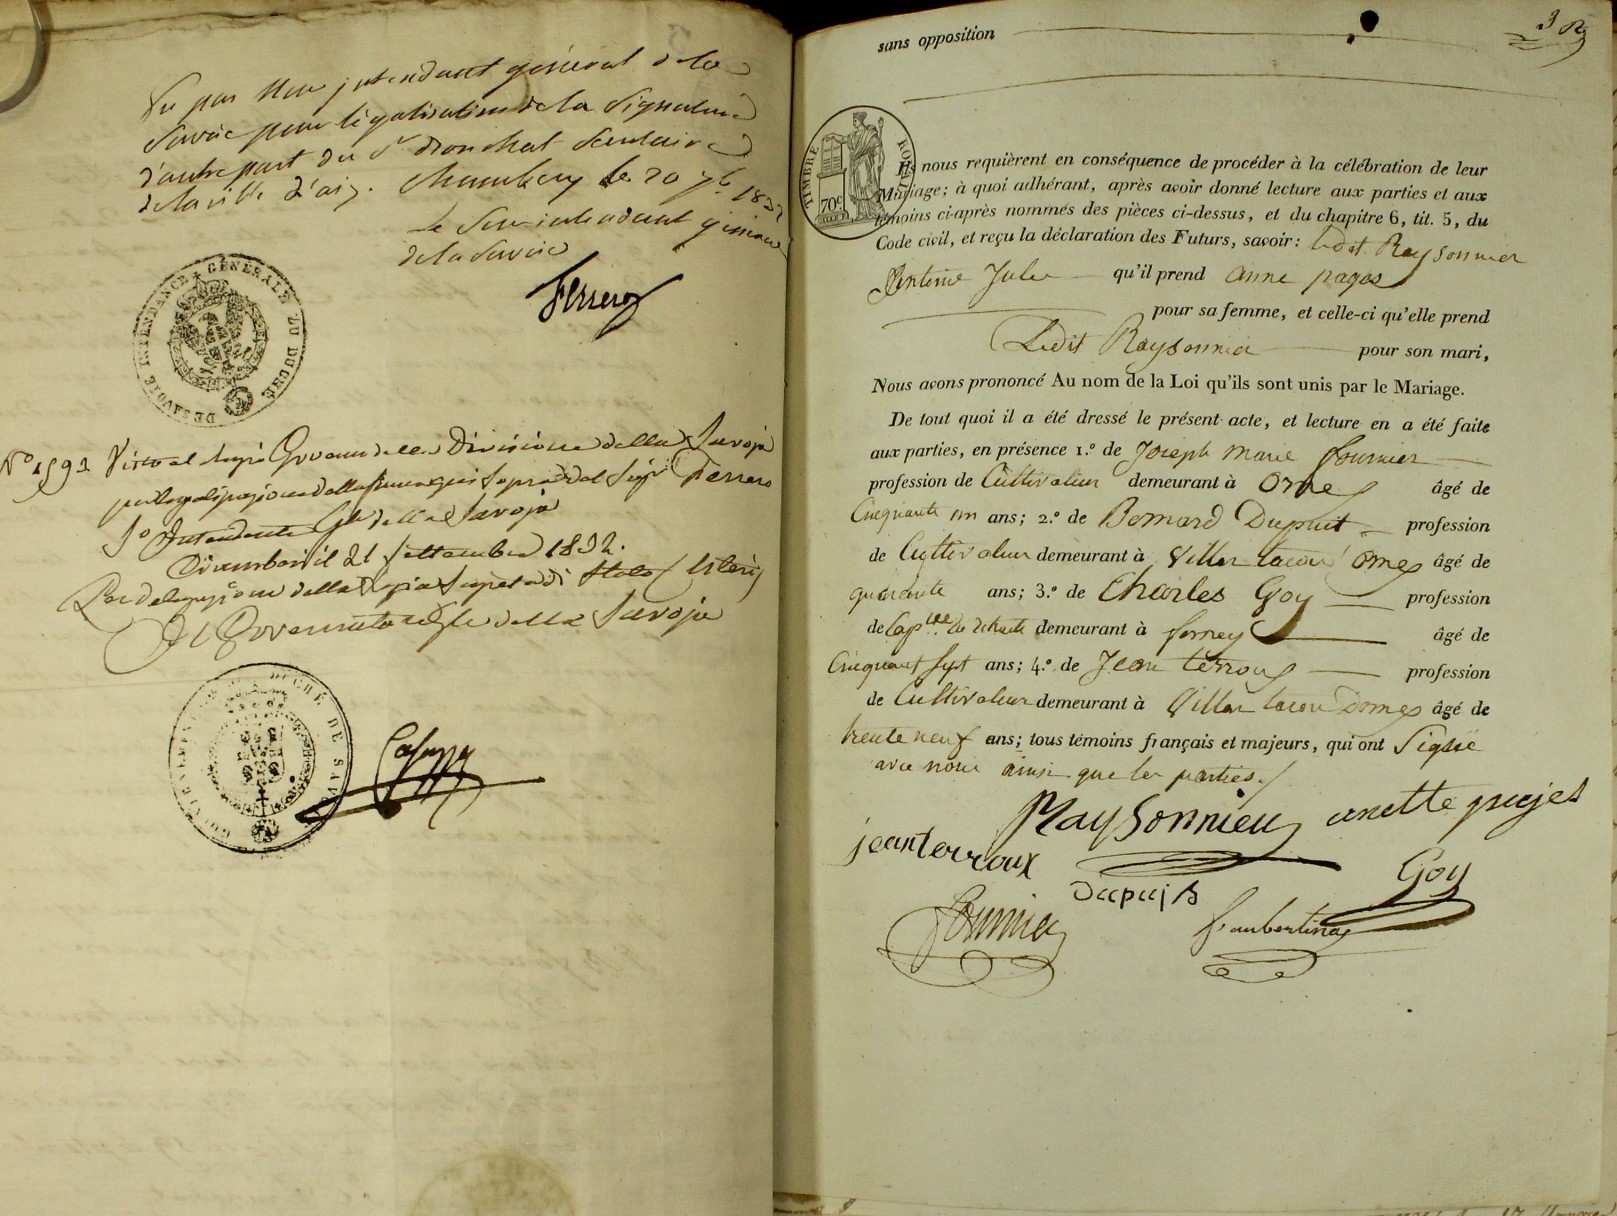 Vu par Nous intendant général de la
Savoie pour légalisation de la signature
d'autre part du Sr secrétaire
de la ville d'aix. Chambery le 20 7bre 1832
Le intendant général
de la Savoie
Ferrero
INTENDANCE GÉNÉRALE DU DUCHÉ DE SAVOIE
No 1591 Visto al Regio Governo della Divisione della Savoja
per legalizzazione della firma qui sopra del Sigr Ferrero
Intendente Gle della Savoja
Ciamberì il 21 Settembre 1832.
Per delegazione della Regia Segreteria di Stato Esteri
Il Governatore Gle della Savoja
DUCHÉ DE SAVOIE
3
sans opposition
TIMBRE ROYAL
70c
Ils nous requièrent en conséquence de procéder à la célébration de leur
Mariage; à quoi adhérant, après avoir donné lecture aux parties et aux
témoins ci-après nommés des pièces ci-dessus, et du chapitre 6, tit. 5, du
Code civil, et reçu la déclaration des Futurs, savoir: ledit Raysonnier
Antoine Jules qu'il prend anne pages
pour sa femme, et celle-ci qu'elle prend
Ledit Raysonnier pour son mari,
Nous avons prononcé Au nom de la Loi qu'ils sont unis par le Mariage.
De tout quoi il a été dressé le présent acte, et lecture en a été faite
aux parties, en présence 1.º de Joseph Marie fournier
profession de Cultivateur demeurant à Ornex âgé de
Cinquante un ans; 2.º de Bernard Dupuit profession
de Cultivateur demeurant à Villar tacon Ornex âgé de
quarante ans; 3.º de Charles Goy profession
de Capne de retraite demeurant à ferney âgé de
Cinquant sept ans; 4.º de Jean terroux profession
de Cultivateur demeurant à Villar tacon Dornex âgé de
trente neuf ans; tous témoins français et majeurs, qui ont Signé
avec nous ainsi que les parties.
Raysonnier anette pages
jean terroux
Dupuis Goy
fournier